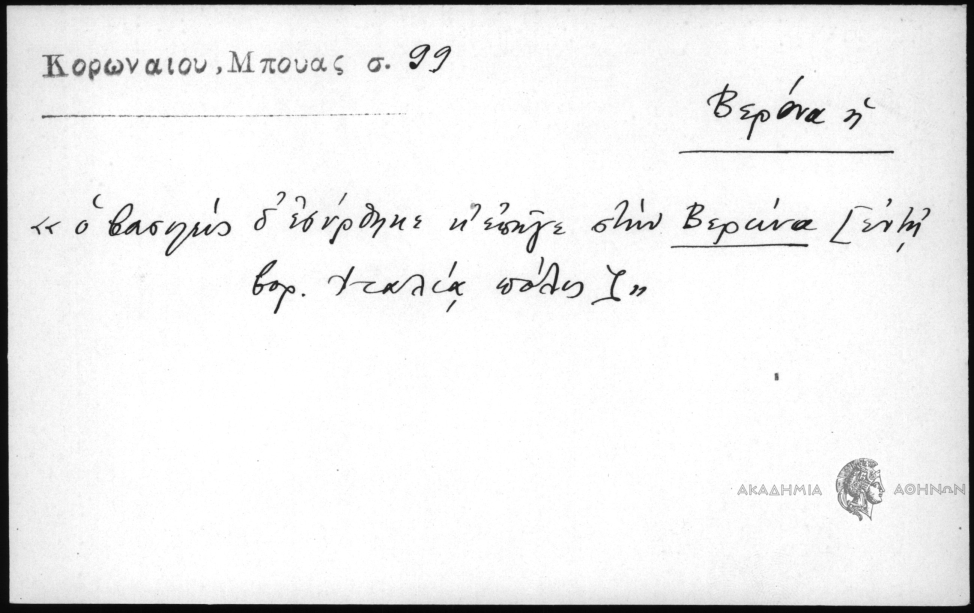 Κορωναιου, Μπουας σ. 99
Βερόνα ἡ
«ὁ βασιληὺς δ' ἐσύρθηκε κ' ἐπῆγε στὴν Βερώνα [ἐν τῇ
βορ. Ἰταλίᾳ πόλις]»
ΑΚΑΔΗΜΙΑ ΑΘΗΝΩΝ